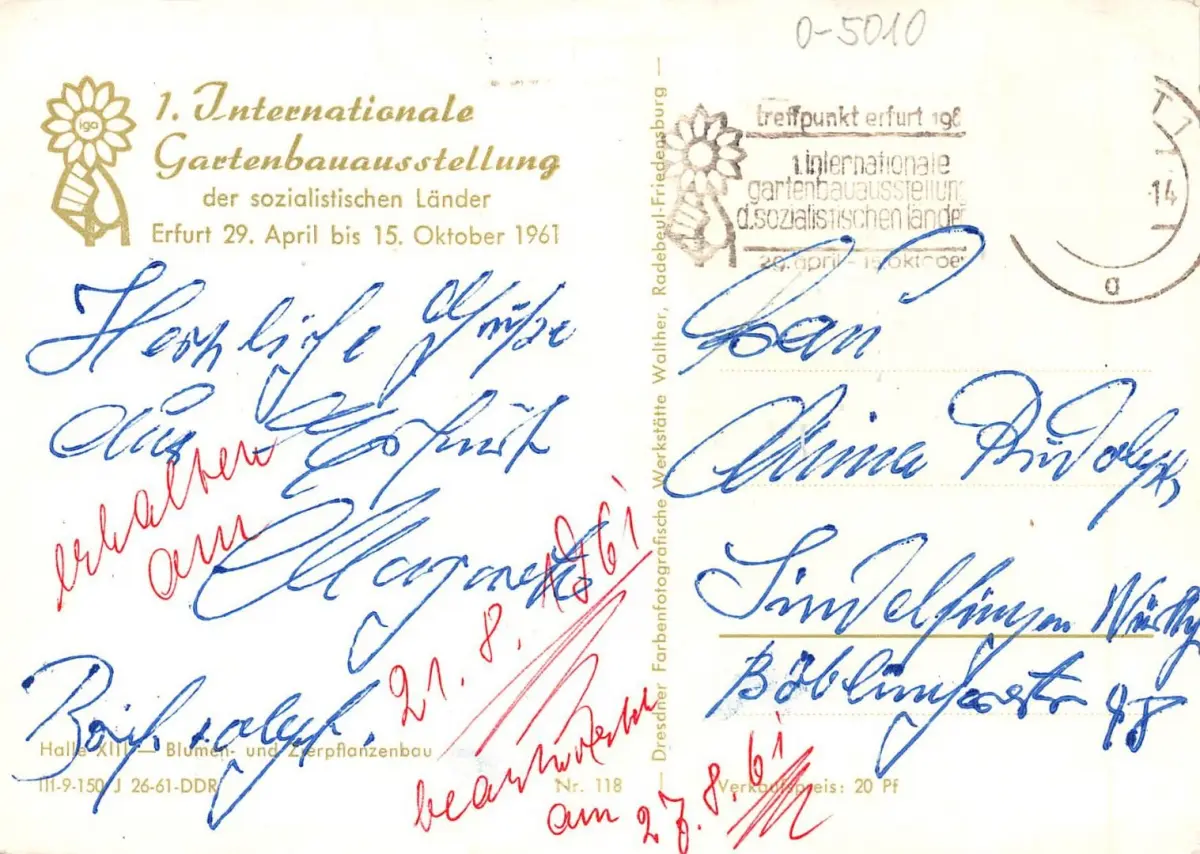 0-5010
iga
1. Internationale
Gartenbauausstellung
der sozialistischen Länder
Erfurt 29. April bis 15. Oktober 1961
treffpunkt erfurt 196
1. internationale
gartenbauausstellung
d. sozialistischen länder
29. april - 15. oktober
T 1
14
a
Herzliche Grüße
aus Erfurt
Margarete
erhalten
am
21. 8. 1961
beantwortet
am 27. 8. 61
Frau
Anna Rudolph
Sindelfingen Württbg
Böblingerstr 98
Halle XIII — Blumen- und Zierpflanzenbau
III-9-150 J 26-61-DDR
Nr. 118
Verkaufspreis: 20 Pf
Dresdner Farbenfotografische Werkstätte Walther, Radebeul-Friedensburg